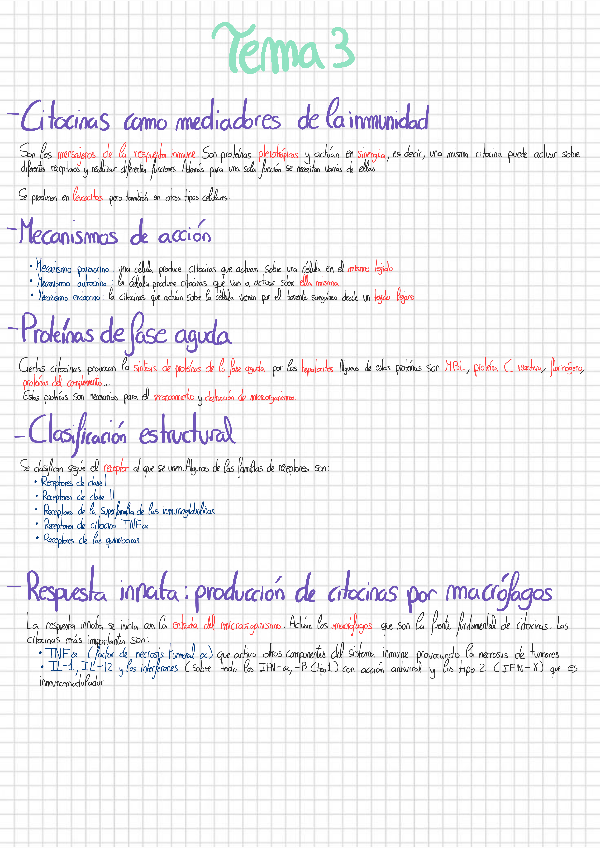 Tema 3
- Citocinas como mediadores de la inmunidad
Son los mensajeros de la respuesta inmune. Son proteínas pleiotrópicas y actúan en sinergia, es decir, una misma citocina puede actuar sobre
diferentes receptores y realizar diferentes funciones. Además para una sola función se necesitan varias de ellas.
Se producen en leucocitos pero también en otros tipos celulares.
- Mecanismos de acción
• Mecanismo paracrino: una célula produce citocinas que actúan sobre una célula en el mismo tejido
• Mecanismo autocrino: la célula produce citocinas que van a actuar sobre ella misma
• Mecanismo endocrino: la citocinas que actúan sobre la célula vienen por el torrente sanguíneo desde un tejido lejano
- Proteínas de fase aguda
Ciertas citocinas provocan la síntesis de proteínas de la fase aguda por los hepatocitos. Algunas de estas proteínas son MBL, proteína C reactiva, fibrinógeno,
proteínas del complemento...
Estas proteínas son necesarias para el reconocimiento y destrucción de microorganismos.
- Clasificación estructural
Se clasifican según el receptor al que se unen. Algunas de las familias de receptores son:
• Receptores de clase I
• Receptores de clase II
• Receptores de la superfamilia de las inmunoglobulinas
• Receptores de citocina TNFα
• Receptores de las quimiocinas
- Respuesta innata: producción de citocinas por macrófagos
La respuesta innata se inicia con la entrada del microorganismo. Actúan los macrófagos que son la fuente fundamental de citocinas. Las
citocinas más importantes son:
• TNFα (factor de necrosis tumoral α) que activa otros componentes del sistema inmune provocando la necrosis de tumores
• IL-1, IL-12 y los interferones (sobre todo los IFN-α, -β (tipo 1) con acción antiviral y los tipo 2 (IFN-γ) que es
inmunomodulador